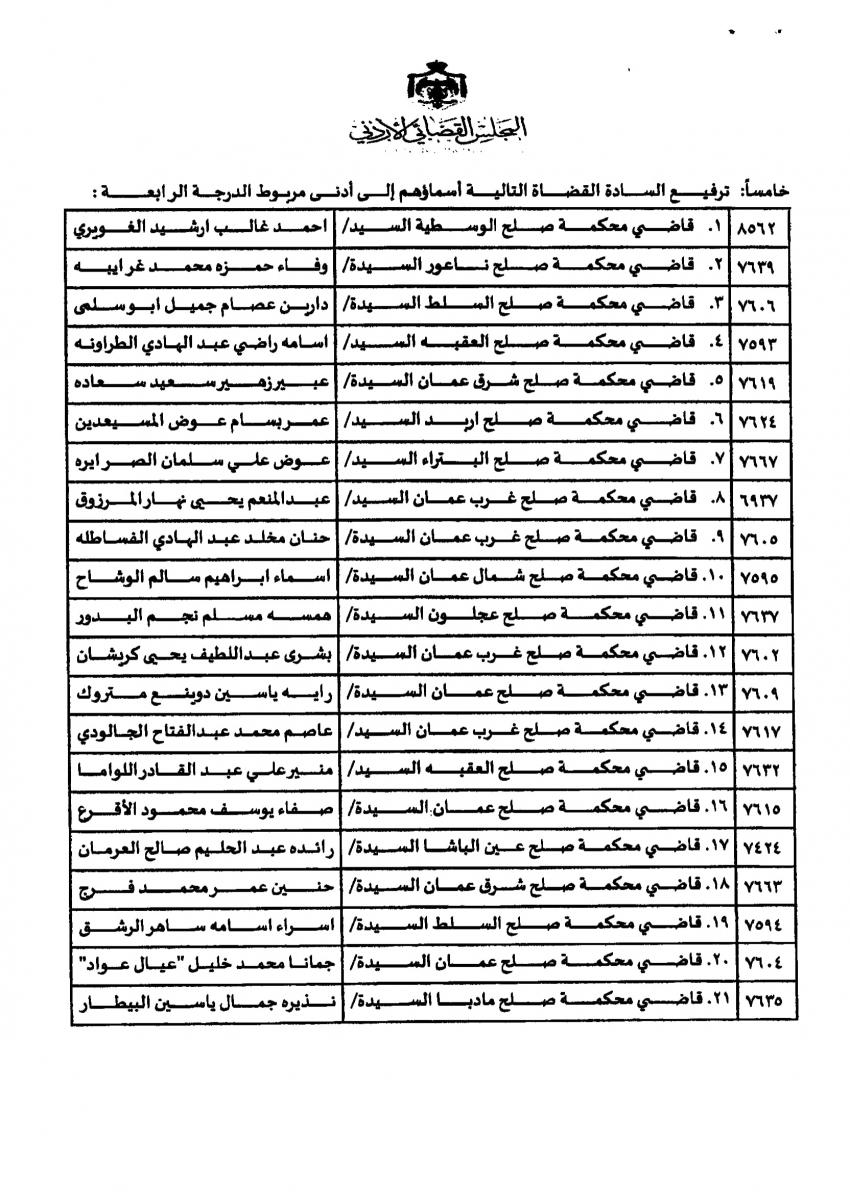 المجلس القضائي الأردني
خامساً: ترفيع السادة القضاة التالية أسماؤهم إلى أدنى مربوط الدرجة الرابعة :
٨٥٦٢ ١. قاضي محكمة صلح الوسطية السيد/ احمد غالب ارشيد الغويري
٧٦٣٩ ٢. قاضي محكمة صلح ناعور السيدة/ وفاء حمزه محمد غرايبه
٧٦٠٦ ٣. قاضي محكمة صلح السلط السيدة/ دارين عصام جميل ابوسلمى
٧٥٩٣ ٤. قاضي محكمة صلح العقبه السيد/ اسامه راضي عبد الهادي الطراونه
٧٦١٩ ٥. قاضي محكمة صلح شرق عمان السيدة/ عبير زهير سعيد سعاده
٧٦٢٤ ٦. قاضي محكمة صلح اربد السيد/ عمر بسام عوض المسيعدين
٧٦٦٧ ٧. قاضي محكمة صلح البتراء السيد/ عوض علي سلمان الصرايره
٦٩٣٧ ٨. قاضي محكمة صلح غرب عمان السيد/ عبدالمنعم يحيى نهار المرزوق
٧٦٠٥ ٩. قاضي محكمة صلح غرب عمان السيدة/ حنان مخلد عبد الهادي الفساطله
٧٥٩٥ ١٠. قاضي محكمة صلح شمال عمان السيدة/ اسماء ابراهيم سالم الوشاح
٧٦٣٧ ١١. قاضي محكمة صلح عجلون السيدة/ همسه مسلم نجم البدور
٧٦٠٢ ١٢. قاضي محكمة صلح غرب عمان السيدة/ بشرى عبداللطيف يحيى كريشان
٧٦٠٩ ١٣. قاضي محكمة صلح عمان السيدة/ رايه ياسين دوينع متروك
٧٦١٧ ١٤. قاضي محكمة صلح غرب عمان السيد/ عاصم محمد عبدالفتاح الجالودي
٧٦٣٢ ١٥. قاضي محكمة صلح العقبه السيد/ منير علي عبد القادر اللواما
٧٦١٥ ١٦. قاضي محكمة صلح عمان السيدة/ صفاء يوسف محمود الأقرع
٧٤٢٤ ١٧. قاضي محكمة صلح عين الباشا السيدة/ رائده عبد الحليم صالح العرمان
٧٦٦٣ ١٨. قاضي محكمة صلح شرق عمان السيدة/ حنين عمر محمد فرج
٧٥٩٤ ١٩. قاضي محكمة صلح السلط السيدة/ اسراء اسامه ساهر الرشق
٧٦٠٤ ٢٠. قاضي محكمة صلح عمان السيدة/ جمانا محمد خليل "عيال عواد"
٧٦٣٥ ٢١. قاضي محكمة صلح مادبا السيدة/ نذيره جمال ياسين البيطار